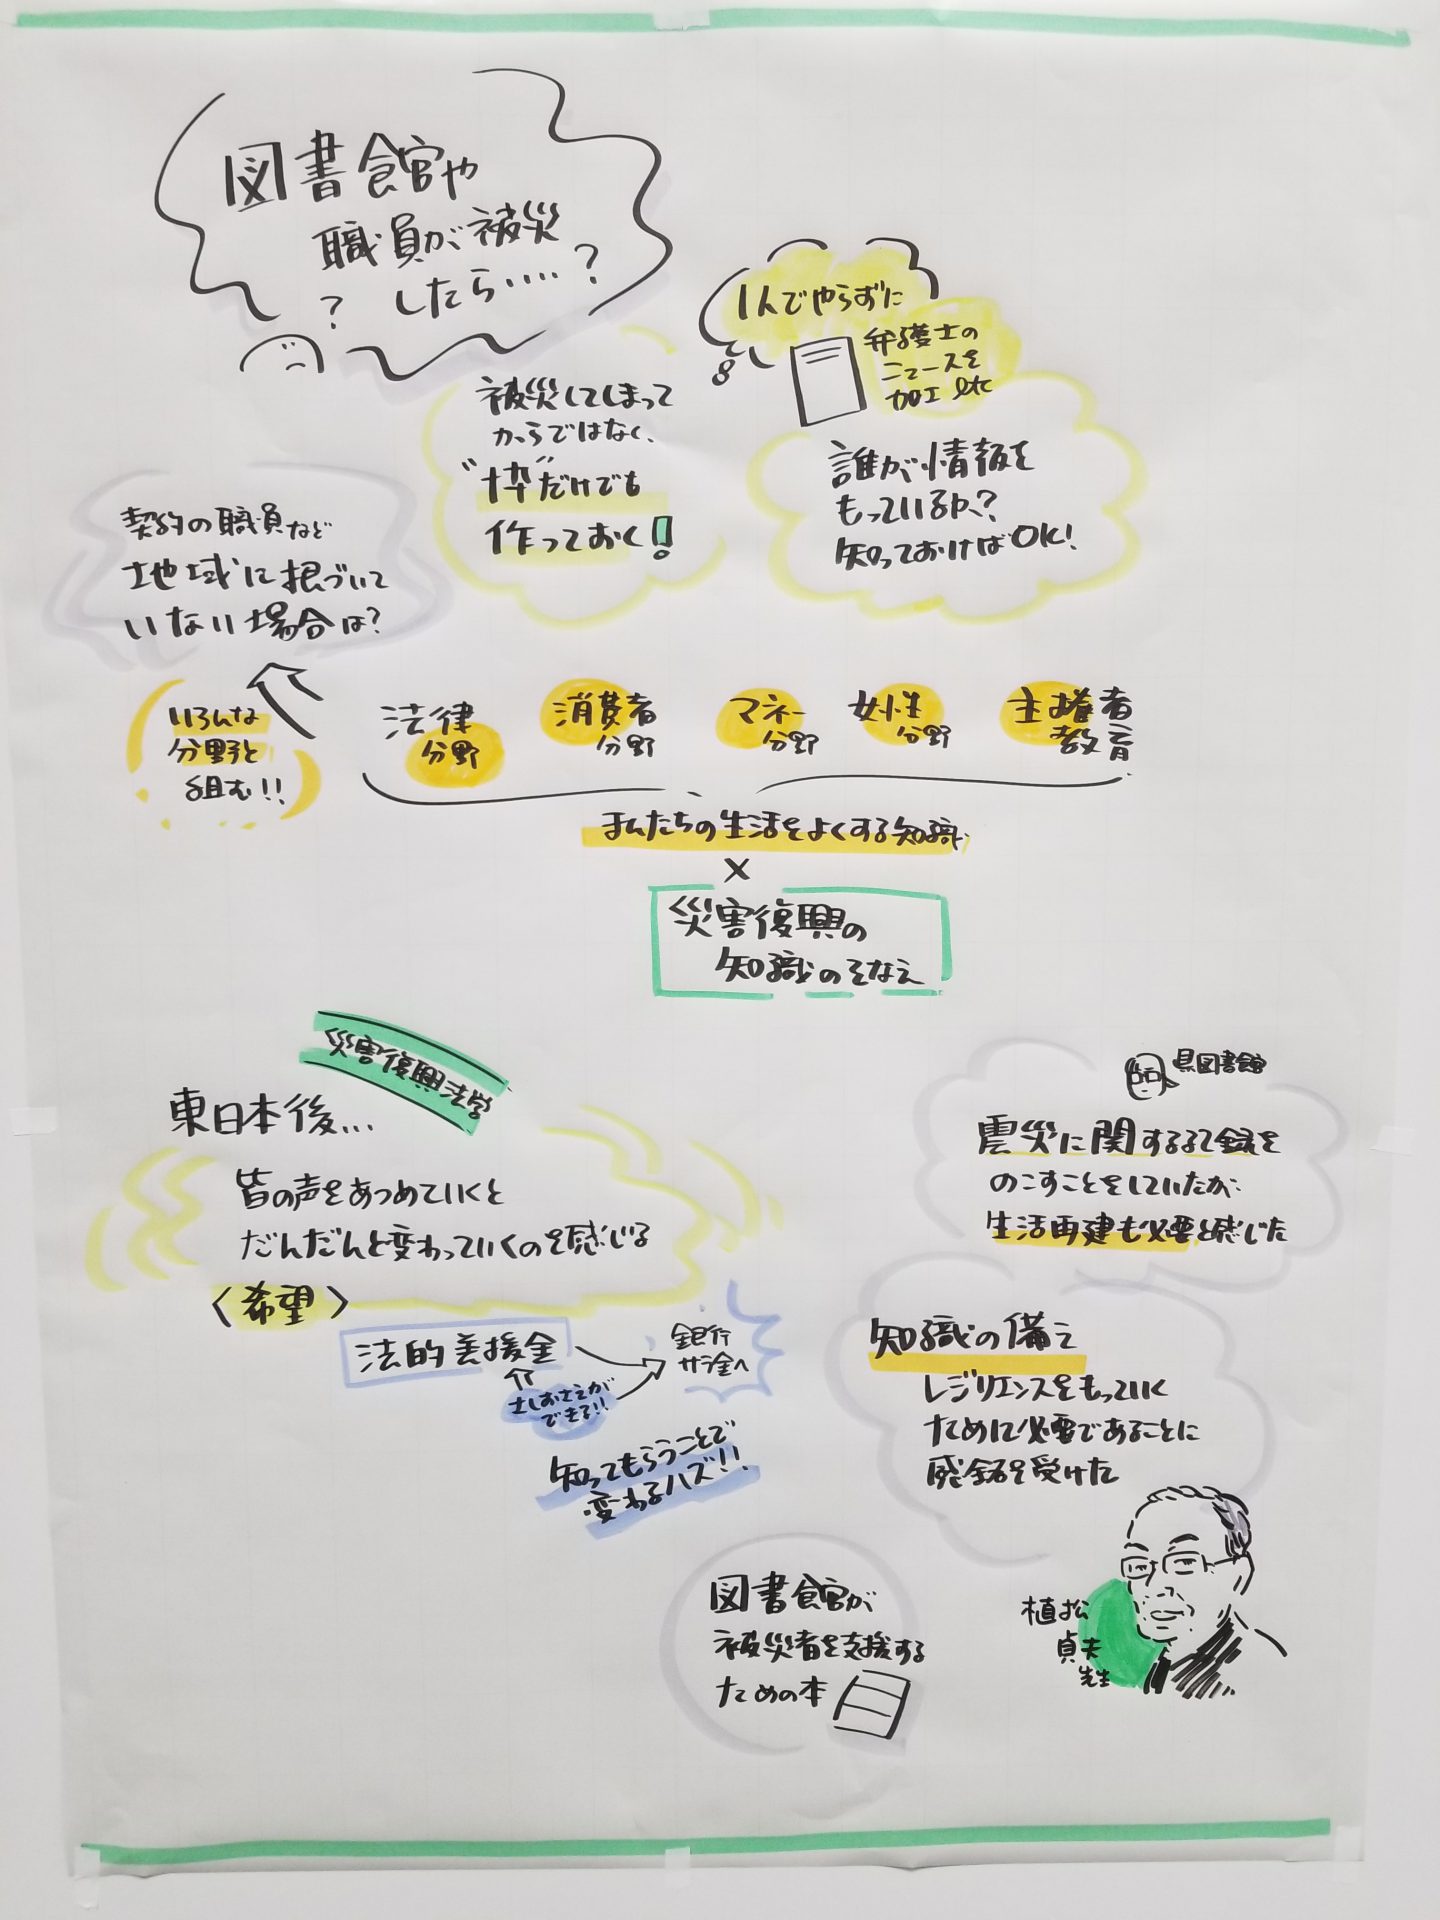 図書館や
職員が被災
? したら‥‥?
1人でやらずに
弁護士の
ニュースを
加工 etc
被災してしまって
からではなく、
"枠"だけでも
作っておく!
誰が情報を
もっているか?
知っておけばOK!
契約の職員など
地域に根づいて
いない場合は?
いろんな
分野と
組む!!
法律
分野
消費者
分野
マネー
分野
女性
分野
主権者
教育
私たちの生活をよくする知識
×
災害復興の
知識のそなえ
災害復興法学
東日本後…
皆の声をあつめていくと
だんだんと変わっていくのを感じる
〈希望〉
法的義援金
銀行
サラ金へ
さしおさえが
できる!!
知ってもらうことで
変わるハズ!!
県図書館
震災に関する記録を
のこすことをしていたが
生活再建も必要と感じた
知識の備え
レジリエンスをもっていく
ために必要であることに
感銘を受けた
植松
貞夫
先生
図書館が
被災者を支援する
ための本